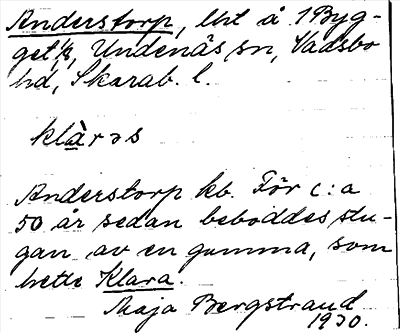 Anderstorp, lht å 1 Byg-
get, Undenäs sn, Vadsbo
hd, Skarab. l.
klàrəs
Anderstorp kb. För c:a
50 år sedan beboddes stu-
gan av en gumma, som
hette Klara.
Maja Bergstrand
1930.